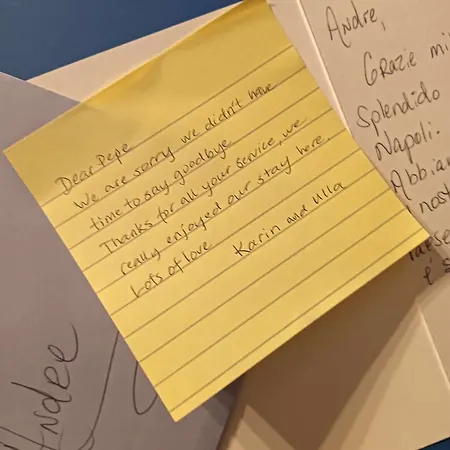 Dear Pepe
We are sorry we didn't have
time to say goodbye
Thanks for all your service, we
really enjoyed our stay here.
Lots of love
Karin and Ulla
Andre,
Grazie mi
Splendido
Napoli.
Abbia
nost
Andee